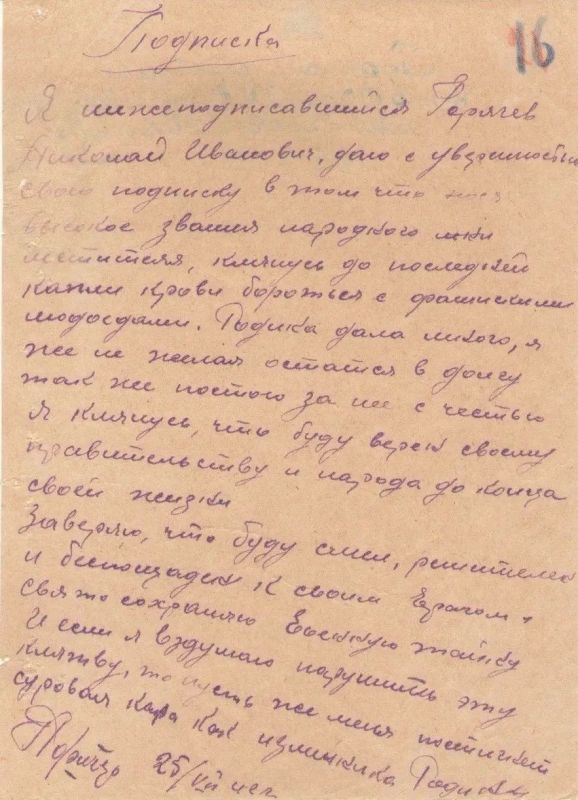 Подписка
16
Я нижеподписавшийся Горячев
Николай Иванович, даю с уверенностью
свою подписку в том что
высокое звания народного
мстителя, клянусь до последней
капли крови бороться с фашискими
людоедами. Родина дала много, я
же не желая остатся в долгу
так же постою за нее с честью
Я клянусь, что буду верен своему
правительству и народа до конца
своей жизни
Заверяю, что буду смел, решителен
и беспощаден к своим врагом,
свято сохраняю военную тайну
И если я вздумаю нарушить эту
клятву, то пусть же меня постигнет
суровая кара как изменника Родины
25/VII